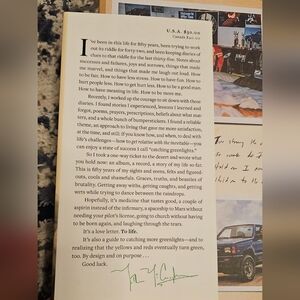 U.S.A. $30.00
Canada $40.00
I've been in this life for fifty years, been trying to work
out its riddle for forty-two, and been keeping diaries of
clues to that riddle for the last thirty-five. Notes about
successes and failures, joys and sorrows, things that made
me marvel, and things that made me laugh out loud. How
to be fair. How to have less stress. How to have fun. How to
hurt people less. How to get hurt less. How to be a good man.
How to have meaning in life. How to be more me.
Recently, I worked up the courage to sit down with those
diaries. I found stories I experienced, lessons I learned and
forgot, poems, prayers, prescriptions, beliefs about what mat-
ters, and a whole bunch of bumperstickers. I found a reliable
theme, an approach to living that gave me more satisfaction,
at the time, and still: If you know how, and when, to deal with
life's challenges—how to get relative with the inevitable—you
can enjoy a state of success I call "catching greenlights."
So I took a one-way ticket to the desert and wrote what
you hold now: an album, a record, a story of my life so far.
This is fifty years of my sights and seens, felts and figured-
outs, cools and shamefuls. Graces, truths, and beauties of
brutality. Getting away withs, getting caughts, and getting
wets while trying to dance between the raindrops.
Hopefully, it's medicine that tastes good, a couple of
aspirin instead of the infirmary, a spaceship to Mars without
needing your pilot's license, going to church without having
to be born again, and laughing through the tears.
It's a love letter. To life.
It's also a guide to catching more greenlights—and to
realizing that the yellows and reds eventually turn green,
too. By design and on purpose . . .
Good luck.